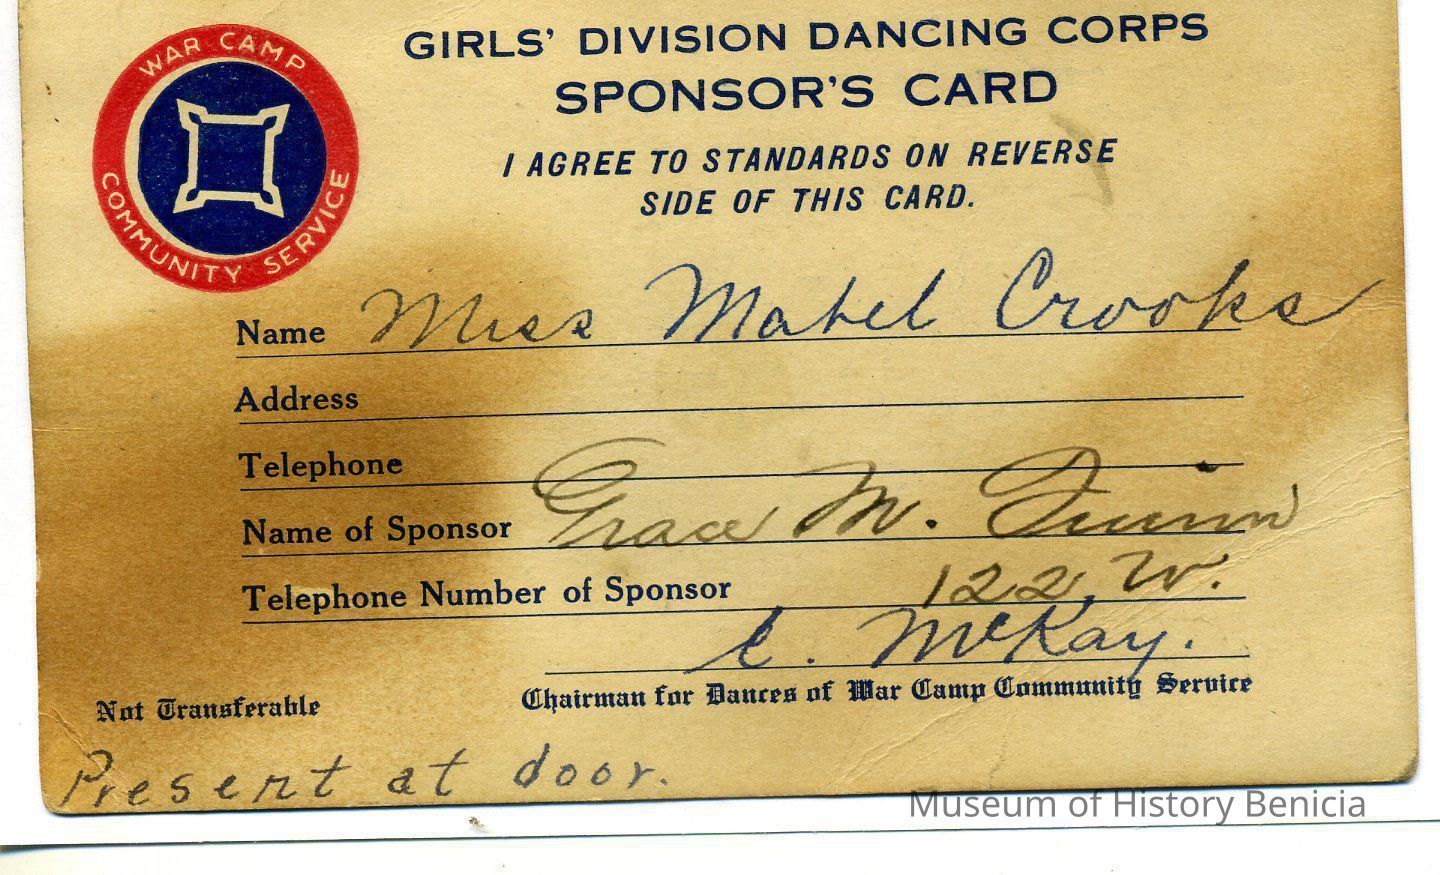 WAR CAMP
COMMUNITY SERVICE
GIRLS' DIVISION DANCING CORPS
SPONSOR'S CARD
I AGREE TO STANDARDS ON REVERSE
SIDE OF THIS CARD.
Name Miss Mabel Crooks
Address
Telephone
Name of Sponsor Grace M.
Telephone Number of Sponsor 122 W.
C. McKay.
Chairman for Dances of War Camp Community Service
Not Transferable
Present at door.
Museum of History Benicia